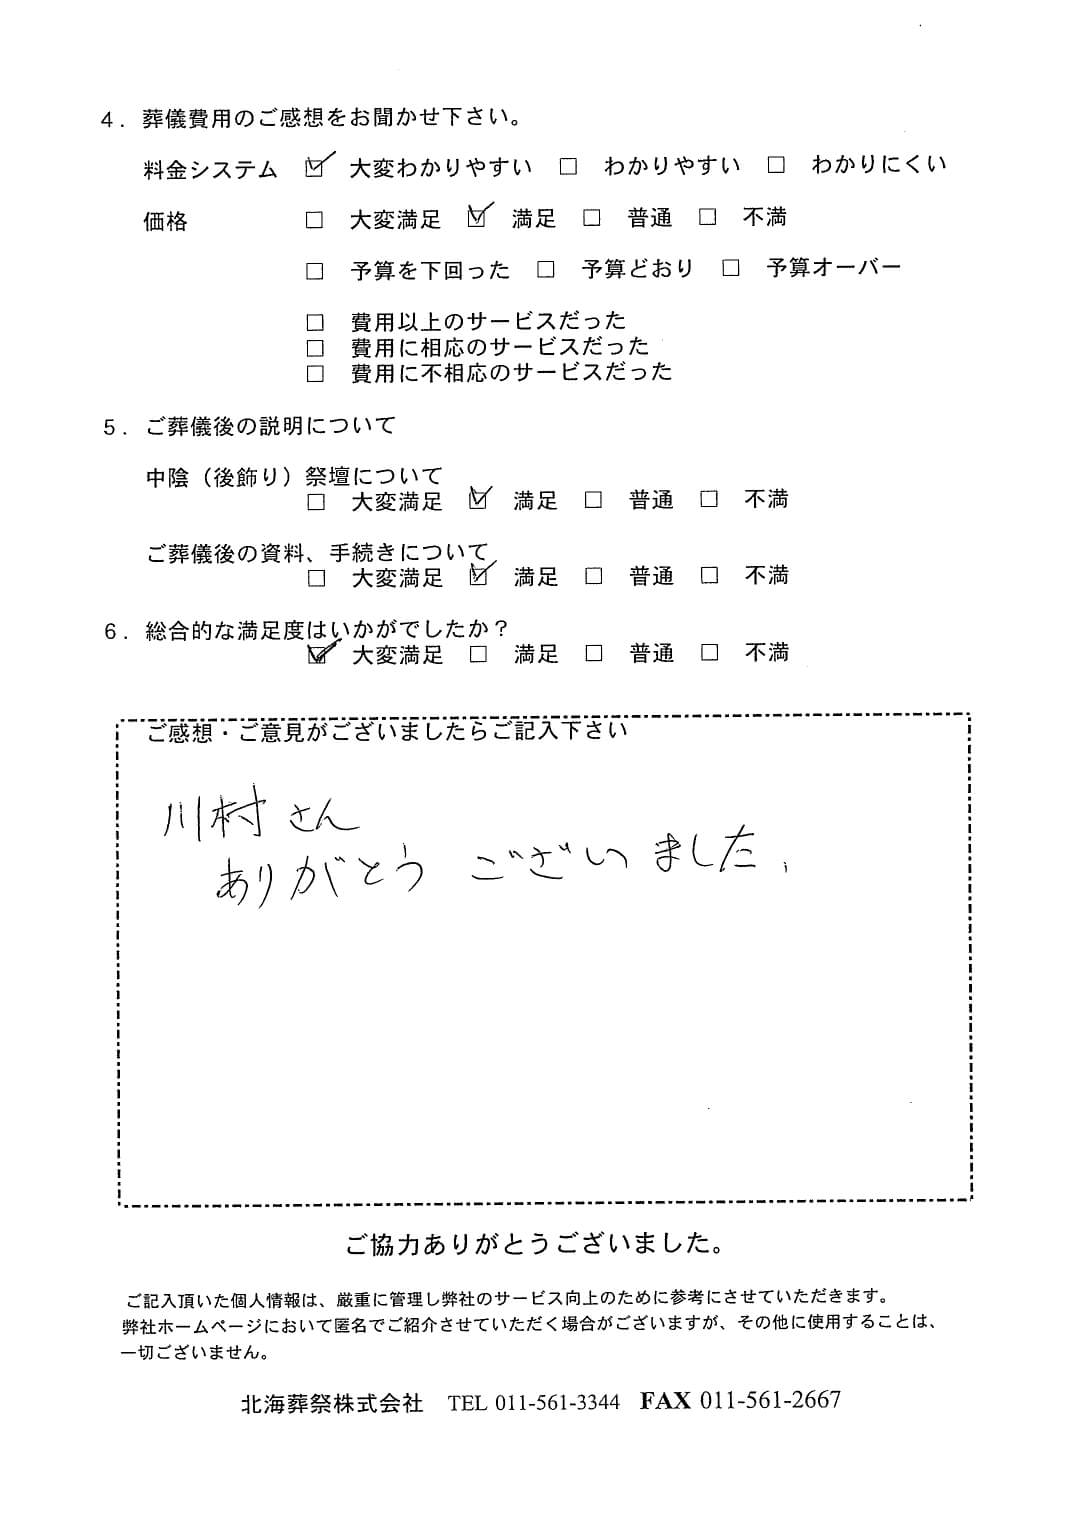 4．葬儀費用のご感想をお聞かせ下さい。
料金システム ☑ 大変わかりやすい □ わかりやすい □ わかりにくい
価格 □ 大変満足 ☑ 満足 □ 普通 □ 不満
□ 予算を下回った □ 予算どおり □ 予算オーバー
□ 費用以上のサービスだった
□ 費用に相応のサービスだった
□ 費用に不相応のサービスだった
5．ご葬儀後の説明について
中陰（後飾り）祭壇について
□ 大変満足 ☑ 満足 □ 普通 □ 不満
ご葬儀後の資料、手続きについて
□ 大変満足 ☑ 満足 □ 普通 □ 不満
6．総合的な満足度はいかがでしたか？
☑ 大変満足 □ 満足 □ 普通 □ 不満
ご感想・ご意見がございましたらご記入下さい
川村さん
ありがとうございました、
ご協力ありがとうございました。
ご記入頂いた個人情報は、厳重に管理し弊社のサービス向上のために参考にさせていただきます。
弊社ホームページにおいて匿名でご紹介させていただく場合がございますが、その他に使用することは、
一切ございません。
北海葬祭株式会社 TEL 011-561-3344 FAX 011-561-2667